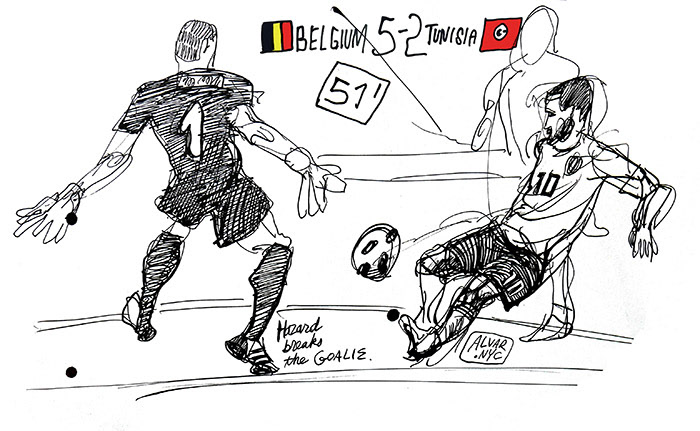 BELGIUM 5-2 TUNISIA
51'
1
10
10
Hazard
breaks
the GOALIE.
ALVAR
.NYC